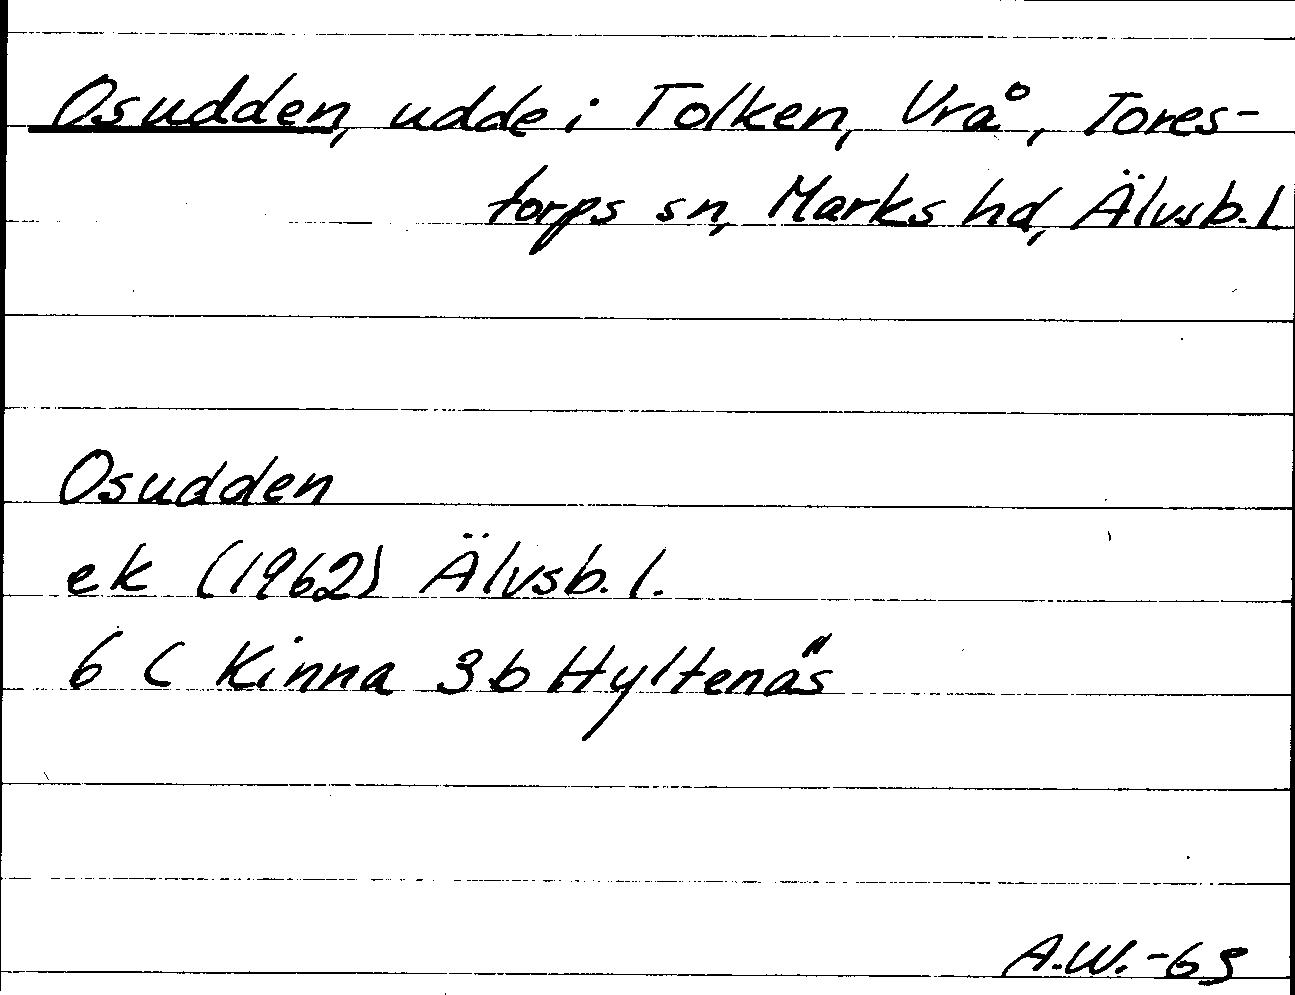 Osudden, udde i Tolken, Vrå, Tores-
torps sn, Marks hd, Älvsb. l
Osudden
ek (1962) Älvsb. l.
6 C Kinna 3 b Hyltenäs
A.W. -63